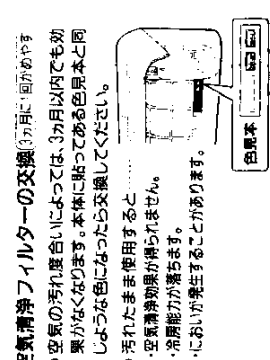 気清浄フィルターの交換(3カ月に1回がめやす
空気の汚れ度合いによっては、3カ月以内でも効
果がなくなります。本体に貼ってある色見本と同
じような色になったら交換してください。
汚れたまま使用すると
・空気清浄効果が得られません。
・冷房能力が落ちます。
・においが発生することがあります。
色見本